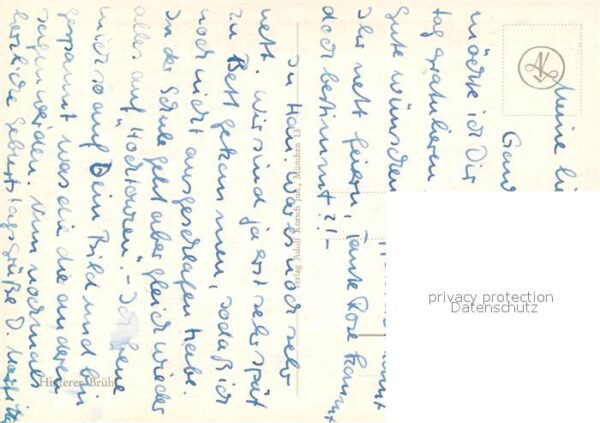 Meine li
Ganz
möchte ich Dir
tag gratulieren
gute wünschen
Ihr nett feiern, Tante Rose kommt
doch bestimmt?! -
In Hau war es noch sehr
nett. Wir sind ja erst sehr spät
zu Bett gekommen, sodaß ich
noch nicht ausgeschlafen habe.
In der Schule geht aber gleich wieder
alles auf "Hochtouren". - Ich freue
mich so auf Dein Bild und bin
gespannt was die die anderen
sagen werden. Nun nochmals
herzliche Geburtstagsgrüße D.
Verlag Adolf Korsch jun., München 13
Hinterer Brühl
privacy protection
Datenschutz